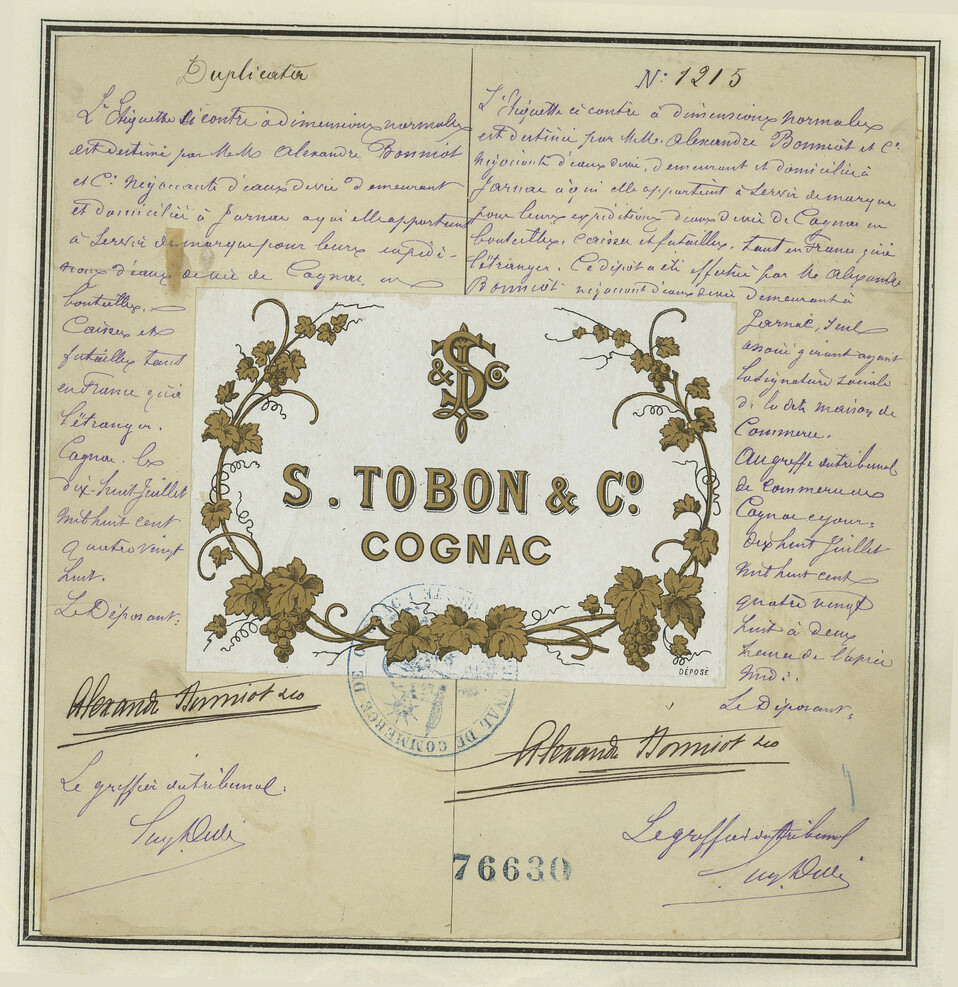 Duplicata
L'Etiquette ci contre à dimensions normales
est destiné par M.M. Alexandre Bonniot
et Cie négociants d'eaux de vie demeurant
et domicilié à Jarnac à qui elle appartient
à servir de marque pour leurs expédi-
tions d'eaux de vie de Cognac en
bouteilles,
Caisses et
futailles tant
en France qu'à
l'étranger.
Cognac. le
dix-huit Juillet
mil huit cent
quatre vingt
huit.
Le Déposant:
Alexandre Bonniot &co
Le greffier du tribunal:
N: 1215
L'Etiquette ci contre à dimensions normales
est destinée par M.M. Alexandre Bonniot et Cie
négociants d'eaux de vie, demeurant et domicilié à
Jarnac à qui elle appartient à servir de marque
pour leurs expéditions d'eaux de vie de Cognac en
bouteilles, caisses et futailles, tant en France qu'à
l'étranger. Ce dépôt a été effectué par M. Alexandre
Bonniot négociant d'eaux de vie demeurant à
Jarnac, seul
associé gérant ayant
la signature sociale
de la dite maison de
Commerce.
Au greffe du tribunal
de commerce de
Cognac ce jour:
dix huit Juillet
mil huit cent
quatre vingt
huit à deux
heures de l'après
midi.
Le Déposant:
Alexandre Bonniot &co
Le greffier du tribunal
S & Co
S. TOBON & Co.
COGNAC
DÉPOSÉ
TRIBUNAL DE COMMERCE DE COGNAC
76630